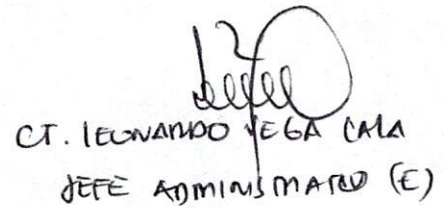 CT. LEONARDO VEGA CALA
JEFE ADMINISTRATIVO (E)